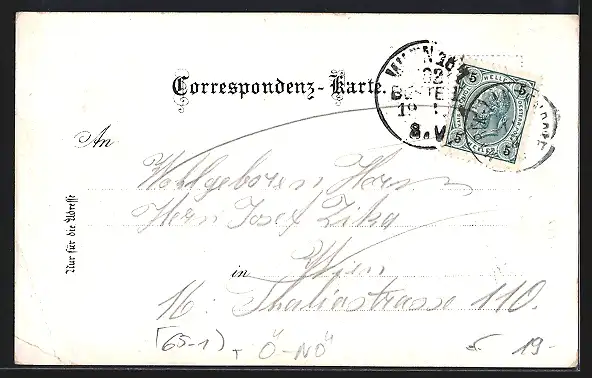 Correspondenz-Karte.
WIEN
BESTELLT
5 HELLER 5
5 HELLER 5
An
Wohlgeboren Herrn
Herrn Josef Zika
in Wien
Nur für die Adresse
16. Thaliastrasse 110.
[65-1) + Ö-NÖ 19-